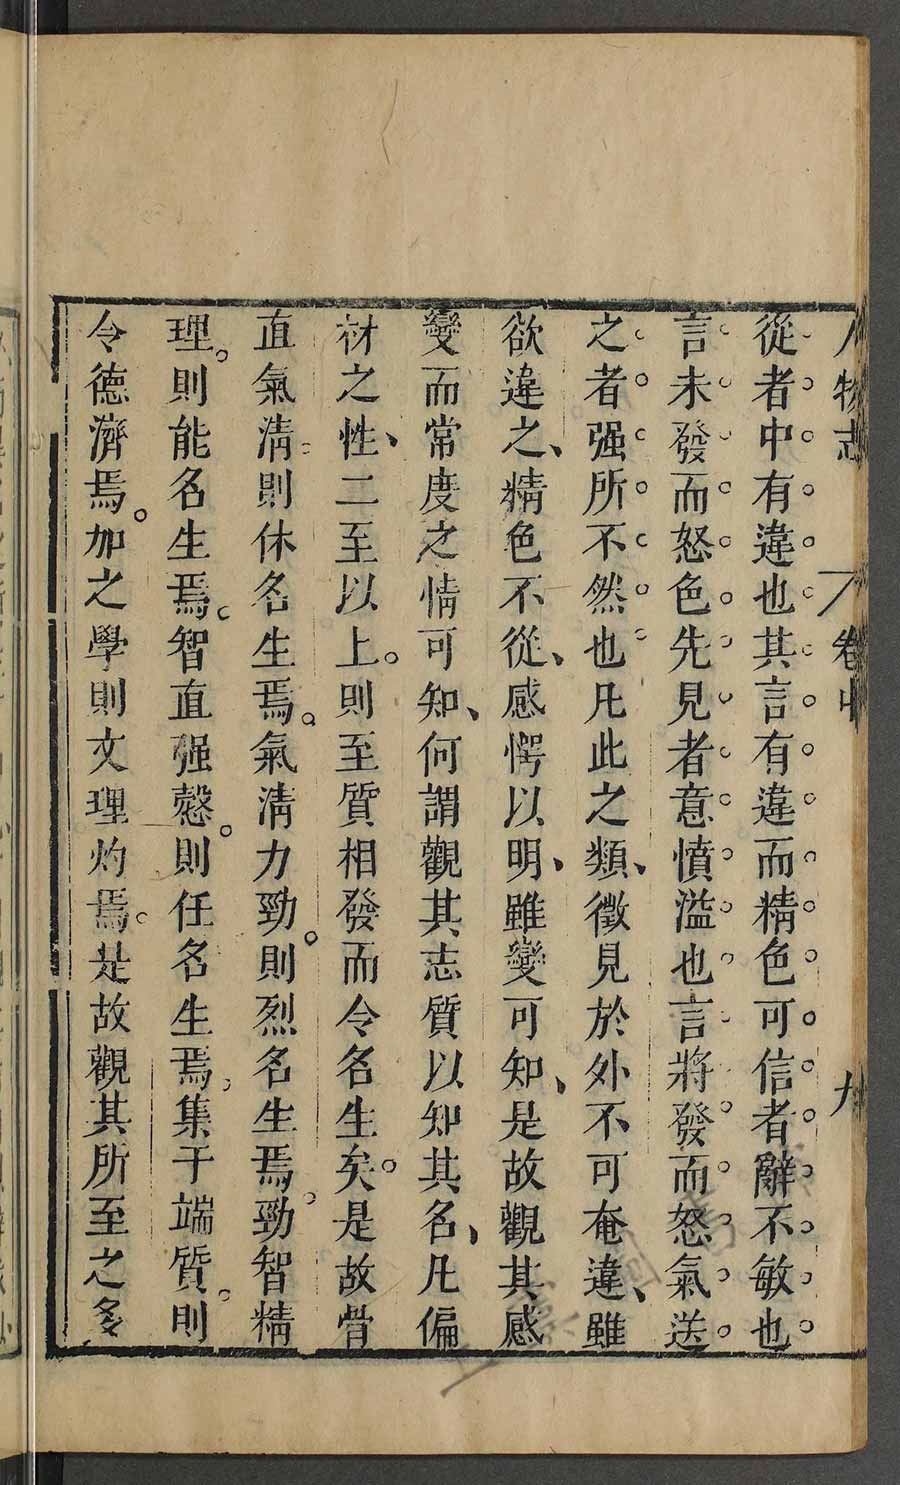 人物志 卷中 九
從者中有違也其言有違而精色可信者辭不敏也
言未發而怒色先見者意憤溢也言將發而怒氣送
之者强所不然也凡此之類、徵見於外不可奄違、雖
欲違之、精色不從、感愕以明、雖變可知、是故觀其感
變而常度之情可知、何謂觀其志質以知其名、凡偏
材之性、二至以上。則至質相發而令名生矣。是故骨
直氣清。則休名生焉。氣清力勁。則烈名生焉。勁智精
理。則能名生焉。智直强慤。則任名生焉。集于端質。則
令德濟焉。加之學則文理灼焉。是故觀其所至之多